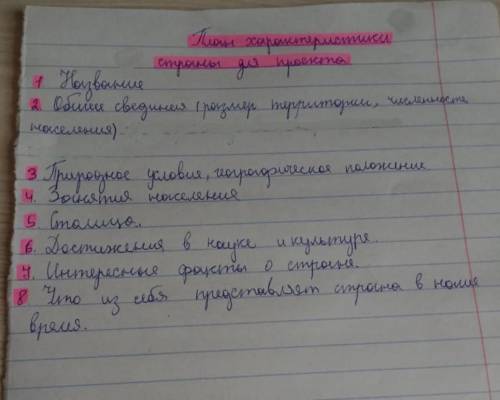 План характеристики
страны для проекта
1 Название
2. Общие сведения (размер территории, численность
населения)
3 Природное условия, географическое положение
4. Занятия населения
5 Столица.
6. Достижения в науке и культуре.
7. Интересные факты о стране.
8 Что из себя представляет страна в наше
время.